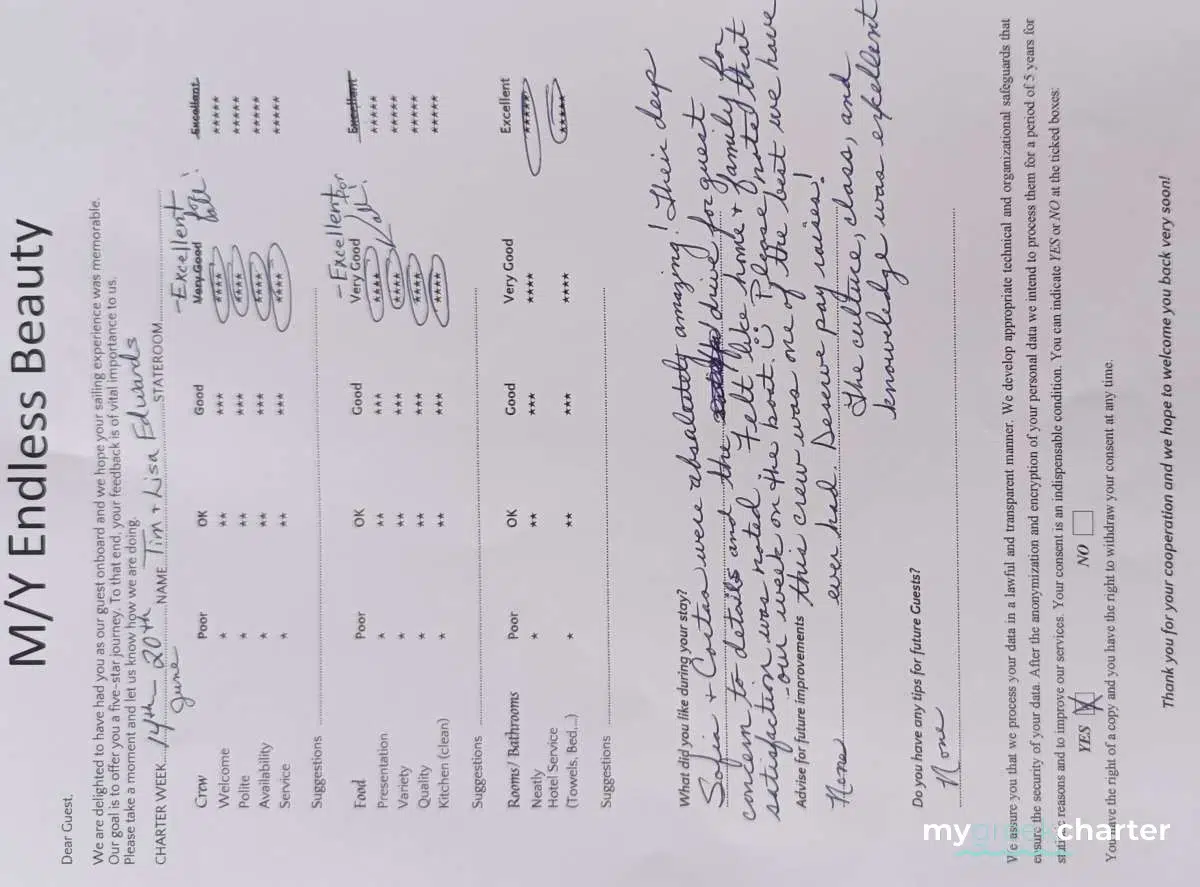 M/Y Endless Beauty
Dear Guest,
We are delighted to have had you as our guest onboard and we hope your sailing experience was memorable.
Our goal is to offer you a five-star journey. To that end, your feedback is of vital importance to us.
Please take a moment and let us know how we are doing.
CHARTER WEEK 14th - 20th June NAME Tim + Lisa Edwards STATEROOM
- Excellent for all!
Crew Poor OK Good Very Good Excellent
Welcome * ** *** **** *****
Polite * ** *** **** *****
Availability * ** *** **** *****
Service * ** *** **** *****
Suggestions
- Excellent for all!
Food Poor OK Good Very Good Excellent
Presentation * ** *** **** *****
Variety * ** *** **** *****
Quality * ** *** **** *****
Kitchen (clean) * ** *** **** *****
Suggestions
Rooms/ Bathrooms Poor OK Good Very Good Excellent
Neatly * ** *** **** *****
Hotel Service
(Towels, Bed,...) * ** *** **** *****
Suggestions
What did you like during your stay?
Sofia + Costas were absolutely amazing! Their deep
concern to details and the drive for guest
satisfaction was noted. Felt like home + family for
our week on the boat. Please note that
Advise for future improvements
this crew was one of the best we have
None
ever had. Deserve pay raises!
The culture, class, and
knowledge was excellent
Do you have any tips for future Guests?
None
We assure you that we process your data in a lawful and transparent manner. We develop appropriate technical and organizational safeguards that
ensure the security of your data. After the anonymization and encryption of your personal data we intend to process them for a period of 5 years for
reasons and to improve our services. Your consent is an indispensable condition. You can indicate YES or NO at the ticked boxes:
YES NO
You have the right of a copy and you have the right to withdraw your consent at any time.
Thank you for your cooperation and we hope to welcome you back very soon!
mygreekcharter